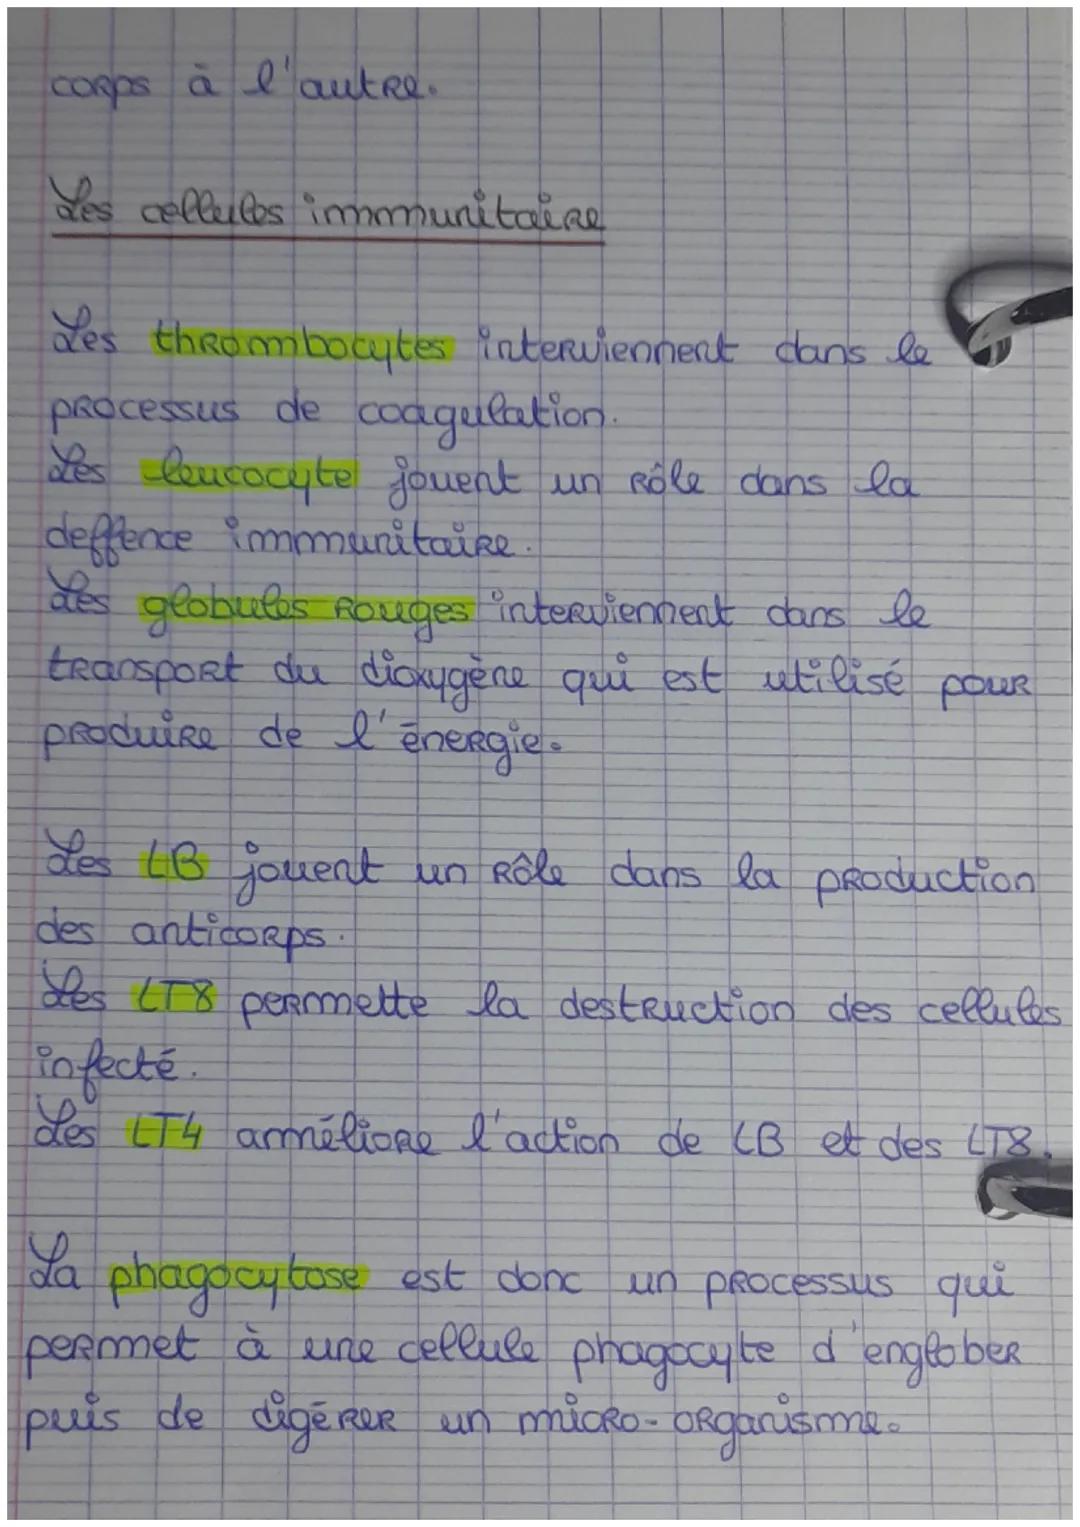 corps à l'autre.
Les cellules immunitaire
Les thrombocytes interviennent dans le
processus de coagulation.
Les leucocyte jouent un rôle dans la
deffence immunitaire.
Les globules rouges interviennent dans le
transport du dioxygène qui est utilisé pour
produire de l'énergie.
Les LB jouent un rôle dans la production
des anticorps.
Les LT8 permette la destruction des cellules
infecté.
Les LT4 amméliore l'action de LB et des LT8.
La phagocytose est donc un processus qui
permet à une cellule phagocyte d'englober
puis de digérer un micro-organisme.